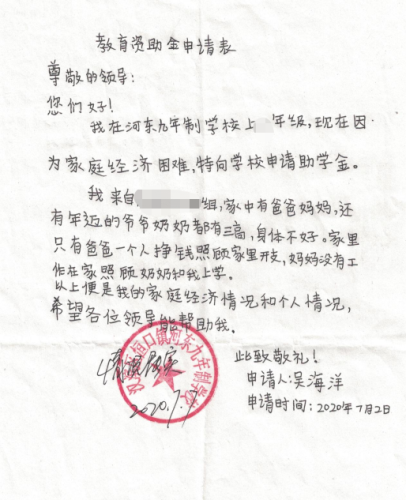 教育资助金申请表
尊敬的领导:
您们好!
我在河东九年制学校上 年级,现在因
为家庭经济困难,特向学校申请助学金。
我来自 组,家中有爸爸妈妈,还
有年迈的爷爷奶奶都有三高,身体不好。家里
只有爸爸一个人挣钱照顾家里开支,妈妈没有工
作在家照顾奶奶和我上学。
以上便是我的家庭经济情况和个人情况,
希望各位领导能帮助我。
此致敬礼!
情况属实
恒口镇河东九年制学校
2020.7.
申请人:吴海洋
申请时间:2020年7月2日